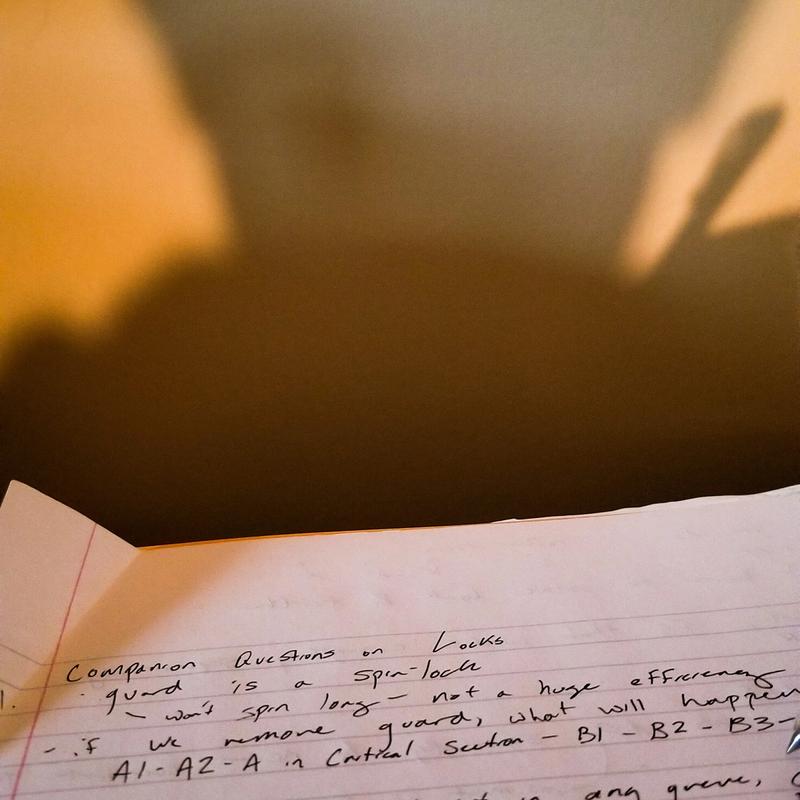 Companion Questions on Locks
1. · guard is a spin-lock
- won't spin long - not a huge efficiency
- if we remove guard, what will happen
A1 - A2 - A in Critical Section - B1 - B2 - B3 -
in any queue,